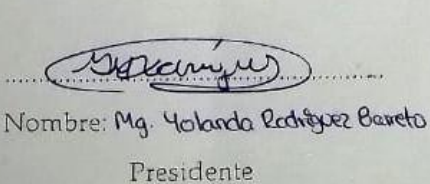 Nombre: Mg. Yolanda Rodríguez Barreto
Presidente